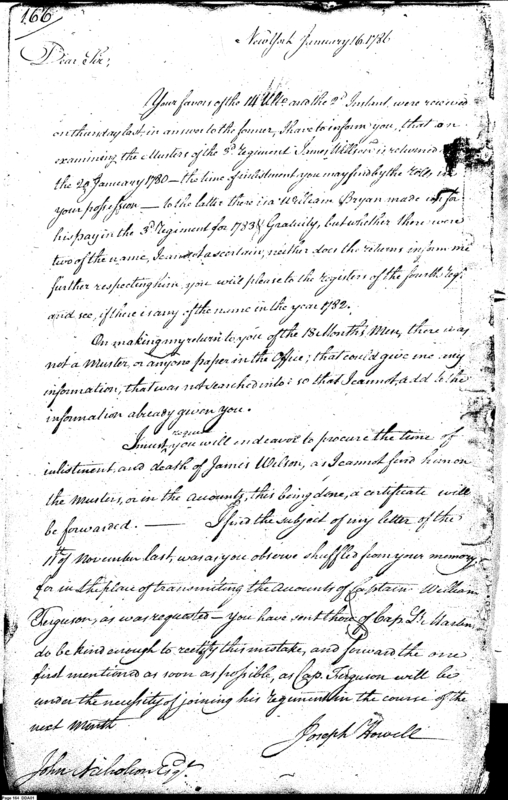 166
New York January 16. 1786
Dear Sir,
Your favors of the 14 Ulto. and the 2d Instant, were received
on thursday last, in answer to the former, I have to inform you, that on
examining the Musters of the 3d Regiment James Wilson is returned
the 20 January 1780 — the time of inlistment you may find by the rolls in
your possession — to the latter there is a William Bryan made up for
his pay in the 3d Regiment for 1783 & Gratuity, but whether there were
two of the name, I cannot ascertain, neither does the returns inform me
further respecting him, you will please to the registers of the fourth Regt.
and see, if there is any of the name in the year 1782.
On making my return to you of the 18 Months Men, there was
not a Muster, or any one paper in the Office, that could give me any
information, that was not searched into: so that I cannot add to the
information already given you.
I must request you will endeavor to procure the time of
inlistment, and death of James Wilson, as I cannot find him on
the Musters, or in the accounts, this being done, a certificate will
be forwarded. — I find the subject of my letter of the
11th of November last, was as you observe shuffled from your memory
for in the place of transmitting the accounts of Captain William
Ferguson, as was requested — you have sent those of Cap. Lt. Martin
do be kind enough to rectify this mistake, and forward the one
first mentioned as soon as possible, as Cap. Ferguson will be
under the necessity of joining his regiment in the course of the
next Month
Joseph Howell
John Nicholson Esqr.
Page 164